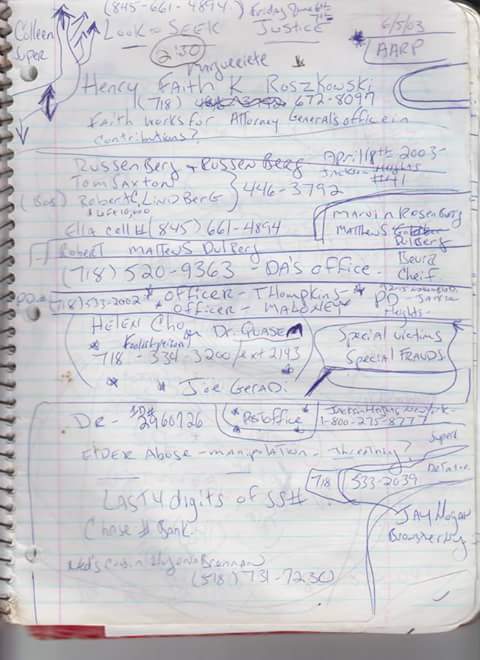 (845-661-4894) Friday
Colleen
Super
Look - SEEK JUSTICE 6/5/03
2:30 * AARP
Marguerite
Henry FAith K Roszkowski
(718) 672-8097
Faith works for Attorney Generals office in
contributions?
RUSSEN Berg + RUSSEN Berg April 18th 2003-
Tom Saxton Jackson Heights
#41
(Bos) Robert C. LINDBERG 446-3792
Ella cell # (845) 661-4894
Marvin Rosenberg
MATTHEWS
DulBerg
Robert MATTEWS DulBerg
(718) 520-9363 - DA's office - Cheif
(718) 533-2002 * OFFICER - THOMPKINS * PD - Jackson
* OFFICER - MALONEY Heights -
HELEN Cho Dr. QUASEM
718 - 334-3200/ext 2143
Special victims
Special FRAUDS
* * Joe GeraDi
DR - ID# 2960726
* Post office *
Jackson Heights New York -
1-800-275-8777
ElDER Abuse - manipulation - threatening?
718 533-2039
LAST 4 digits of SS#
Chase # Bank
JAY Hogan
Ned's cousin Eugene Brennan
(518) 731-7230